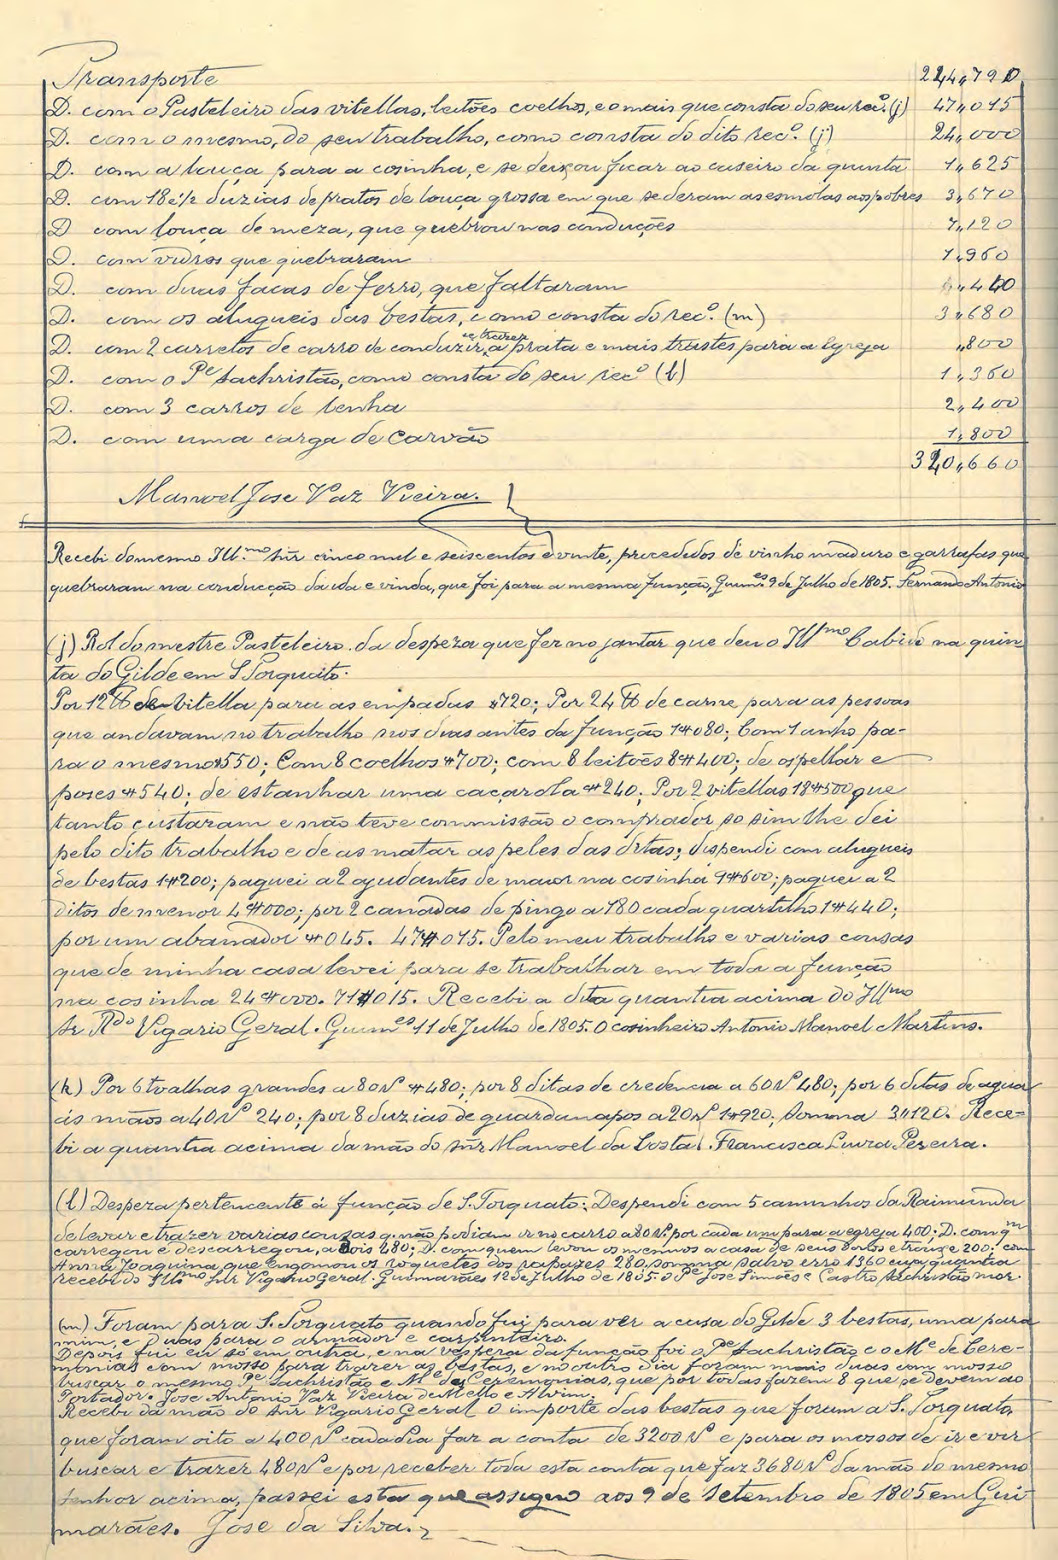 Transporte 224,790
D. com o Pasteleiro das vitellas, leitões coelhos, e o mais que consta do seu rec.º (j) 47,015
D. com o mesmo, do seu trabalho, como consta do dito rec.º (j) 24,000
D. com a louça para a cosinha, e se deixou ficar ao caseiro da quinta 1,625
D. com 18 e ½ duzias de pratos de louça grossa em que se deram as esmolas aos pobres 3,670
D com louça de meza, que quebrou nas conducções 7,120
D. com vidros que quebraram 1,960
D. com duas facas de ferro, que faltaram ,440
D. com os alugueis das bestas, como consta do rec.º (m) 3,680
D. com 2 carretos de carro de conduzir, e trazer a prata e mais trastes para a Egreja ,800
D. com o Pe Sachristão, como consta do seu recº (l) 1,360
D. com 3 carros de lenha 2,400
D. com uma carga de carvão 1,800
320,660
Manoel Jose Vaz Vieira.
Recebi do mesmo Ill.mo Snr cinco mil e seiscentos e vinte, procedidos de vinho maduro e garrafas que
quebraram na conducção da ida e vinda, que foi para a mesma função, Guim.es 9 de Julho de 1805. Fernando Antonio
(j) Rol do mestre Pasteleiro da despeza que fez no jantar que deu o Illmo Cabido na quin
ta do Gilde em S Torquato.
Por 12 ℔ de vitella para as empadas #720; Por 24 ℔ de carne para as pessoas
que andavam no trabalho nos dias antes da função 1#080; Com 1 anho pa-
ra o mesmo #550; Com 8 coelhos #700; com 8 leitões 8#400; de os pellar e
poses #540; de estanhar uma caçarola #240; Por 2 vitellas 18#500 que
tanto custaram e não teve commissão o comprador so sim lhe dei
pelo dito trabalho e de as matar as peles das ditas; dispendi com alugueis
de bestas 1#200; paguei a 2 ajudantes de maior na cosinha 9#600; paguei a 2
ditos de menor 4#000; por 2 canadas de pingo a 180 cada quartilho 1#440;
por um abanador #045. 47#015. Pelo meu trabalho e varias cousas
que de minha casa levei para se trabalhar em toda a função
na cosinha 24#000. 71#015. Recebi a dita quantia acima do Illmo
Sr Rdo Vigario Geral. Guim.es 11 de Julho de 1805. O cosinheiro Antonio Manoel Martins.
(k) Por 6 toalhas grandes a 80 rs #480; por 8 ditas de credencia a 60 rs 480; por 6 ditas de agua
ás mãos a 40 rs 240; por 8 duzias de guardanapos a 20 rs 1#920; somma 3#120. Rece-
bi a quantia acima da mão do snr Manoel da Costa. Francisca Luiza Pereira.
(l) Despeza pertencente á função de S. Torquato: Despendi com 5 caminhos da Raimunda
de levar e trazer varias cousas q. não podiam ir no carro a 80 rs por cada um para a egreja 400; D. com qm
carregou e descarregou, a dois 480; D. com quem levou os mesmos a casa de seus e trouxe 200; com
Anna Joaquina que engomou os roquetes dos rapazes 280, somma salvo erro 1360 cuja quantia
recebi do Illmo Snr Vigario Geral. Guimarães 12 de Julho de 1805. o Pe Jose Simões e Castro Sachristão mor.
(m) Foram para S. Torquato quando fui para ver a casa do Gilde 3 bestas, uma para
mim, e duas para o armador e carpinteiro.
Depois fui eu só em outra, e na vespera da função foi o Pe Sachristão e o Me de Cere-
monias com mosso para trazer as bestas, e no outro dia foram mais duas com mosso
buscar o mesmo Pe Sachristão e Me de Ceremonias, que por todas fazem 8 que se devem ao
Portador. Jose Antonio Vaz Vieira de Mello e Alvim.
Recebi da mão do Snr Vigario Geral o importe das bestas que foram a S. Torquato,
que foram oito a 400 rs cada dia faz a conta de 3200 rs e para os mossos de ir e vir
buscar e trazer 480 rs e por receber toda esta conta que faz 3680 rs da mão do mesmo
Senhor acima, passei esta que assigno aos 9 de Setembro de 1805 em Gui
marães. Jose da Silva.